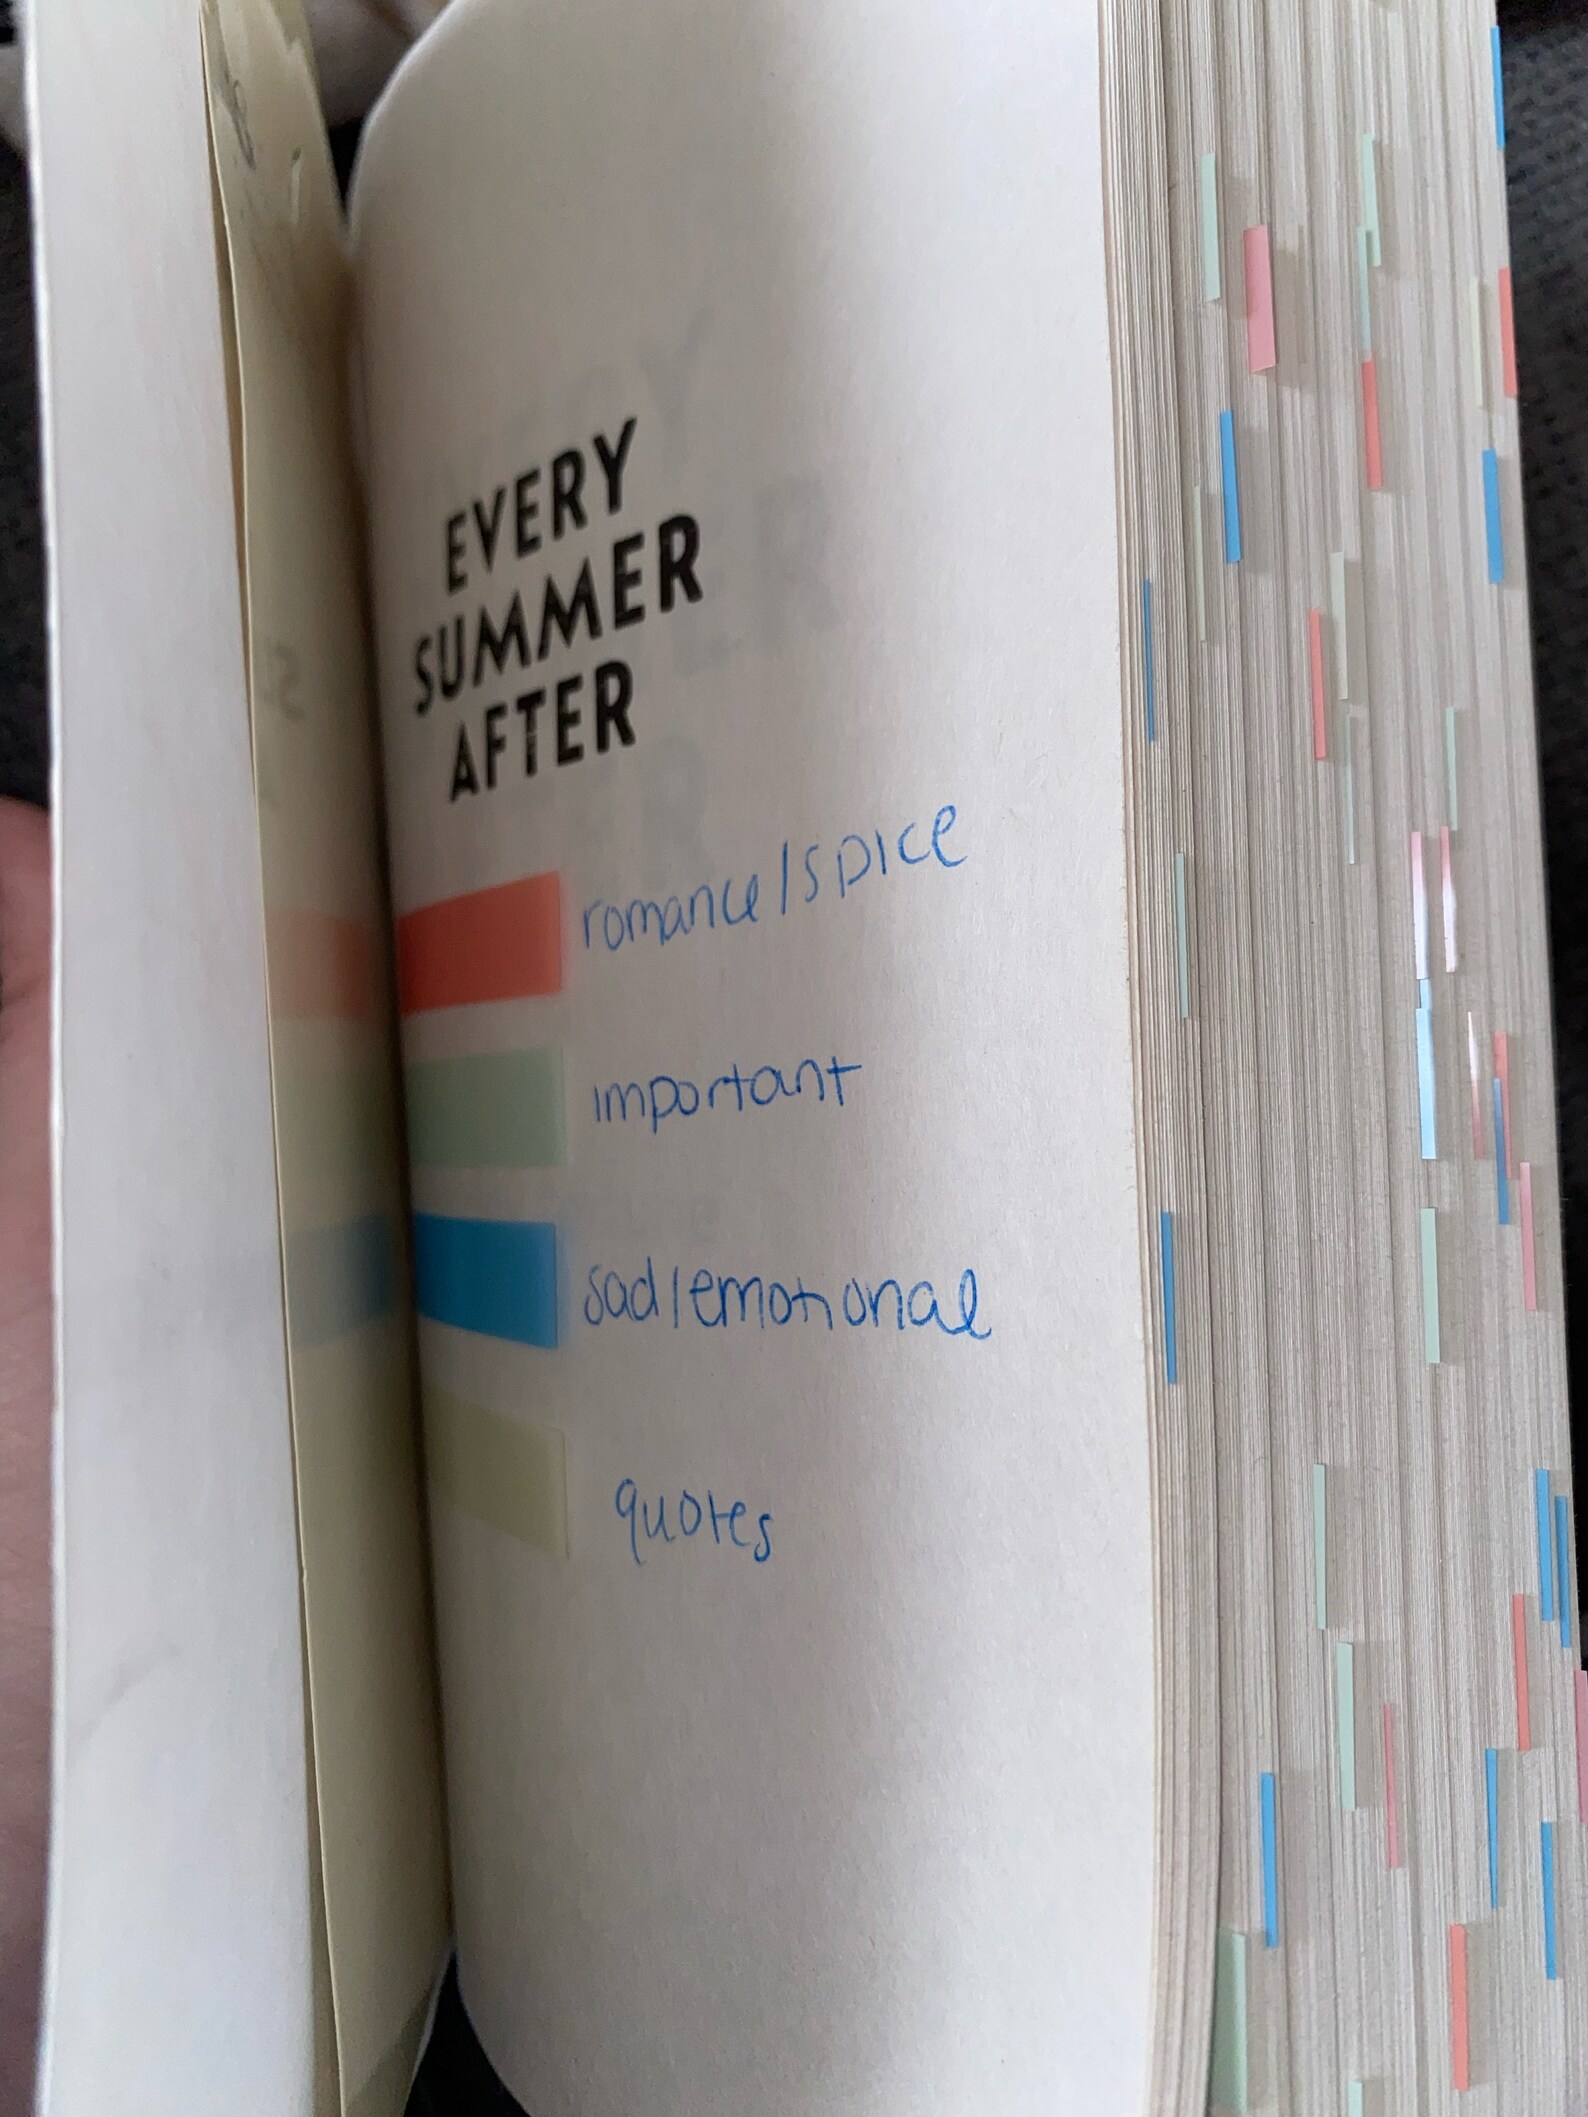 EVERY
SUMMER
AFTER
romance/spice
important
sad/emotional
quotes